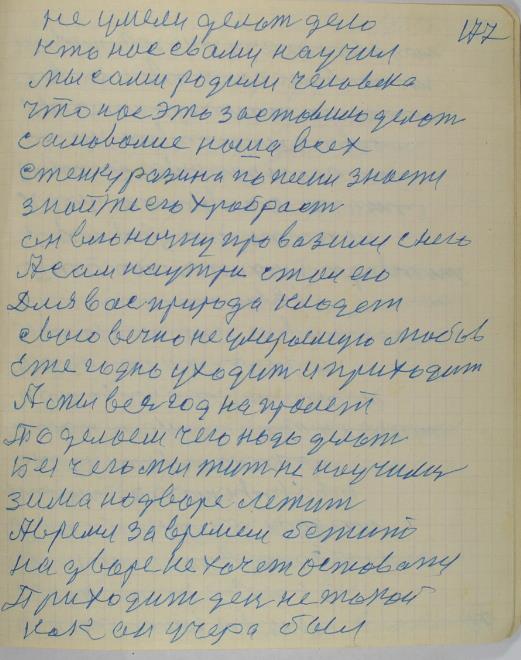 не умели делат дело 177
кто нас свами научил
мы сами родили человека
что нас это заставило делат
самоволие наша всех
стенку разина по песни знаети
знайте его храбраст
он вол ночну провазили снего
А сам наутри стал его
Для вас природа кладет
своего вечно не умераемую любов
Еже годно уходит и приходит
А мы вес год на пролет
То делаем чего надо делат
Без чего мы жит не научилис
зима на дворе лежит
А время за времем бежит
на дворе не хочет оставатц
Приходит ден не такой
как он учера был